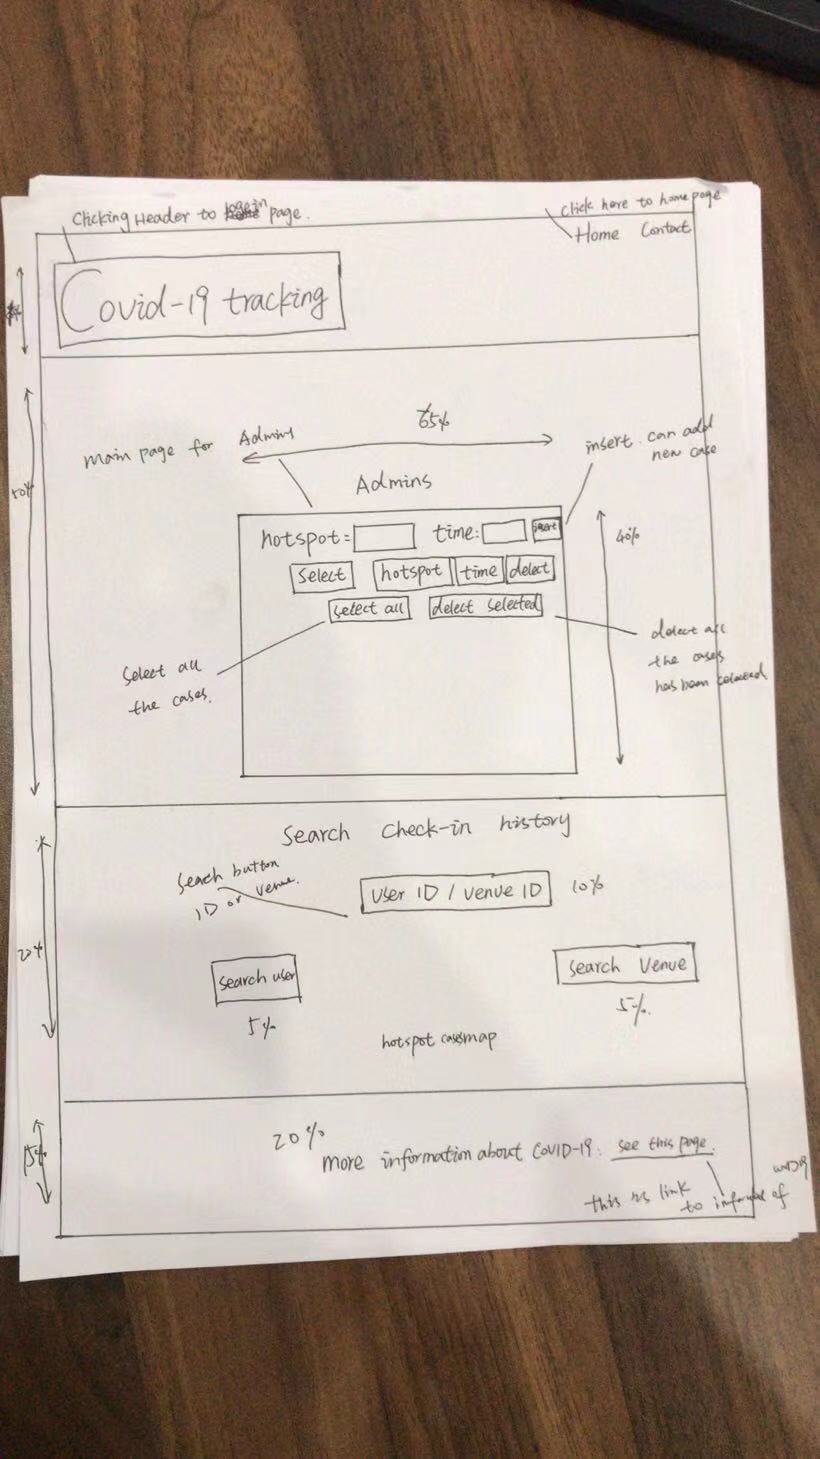 Clicking Header to page.
click here to home page
Home Contact
Covid-19 tracking
65%
main page for Admins
insert can add
new case
Admins
hotspot: time: insert
40%
select hotspot time delect
select all delect selected
Select all
the cases.
delect all
the cases
has been selected
Search check-in history
Seach button
ID or venue.
User ID / Venue ID 10%
20%
Search user
Search Venue
5%
5%.
hotspot casesmap
15%
20%
more information about COVID-19: see this page.
this is link
to of